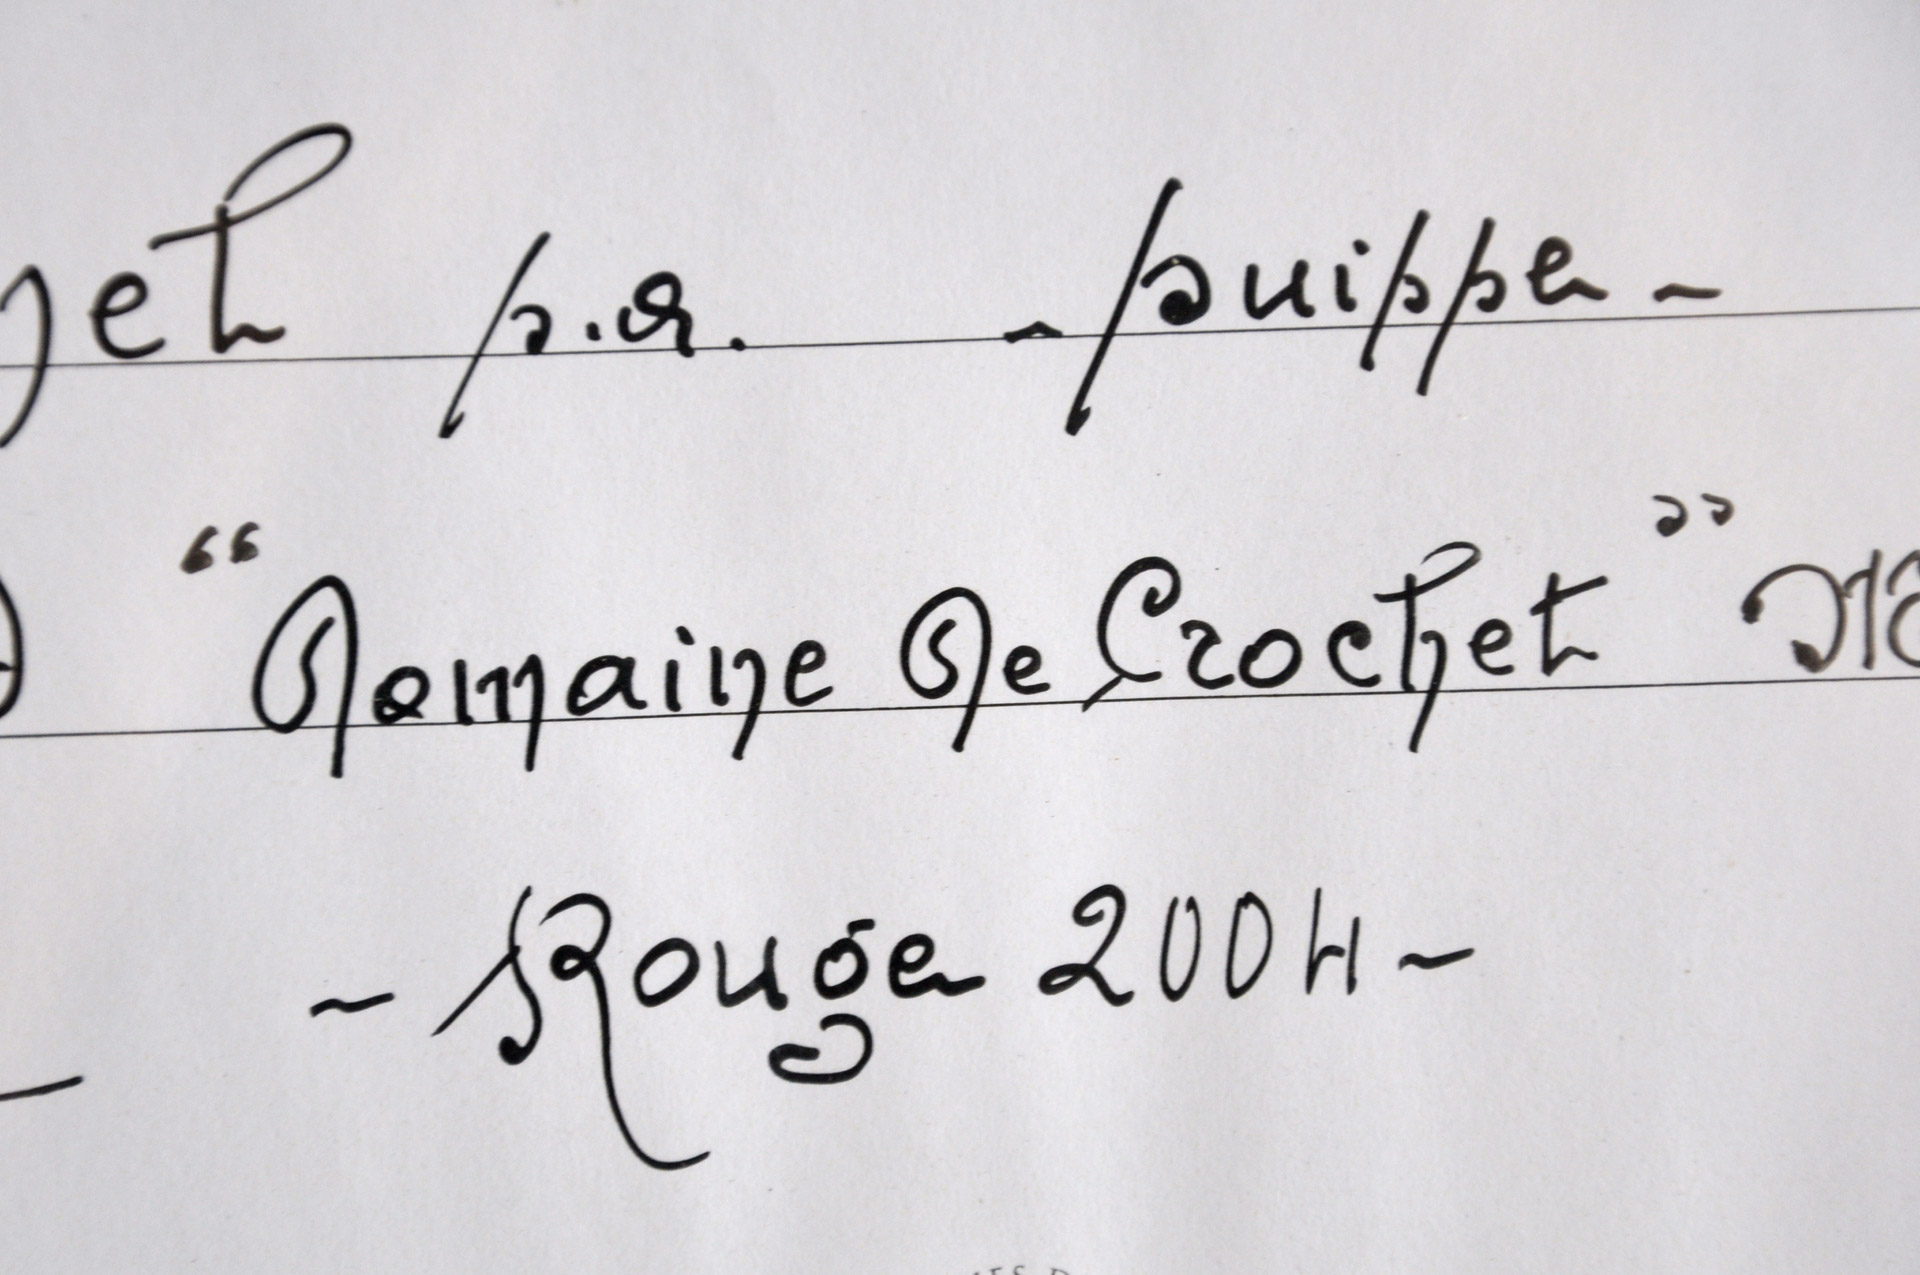 s.a. - suisse -
“Domaine De Crochet”
~ Rouge 2004 ~